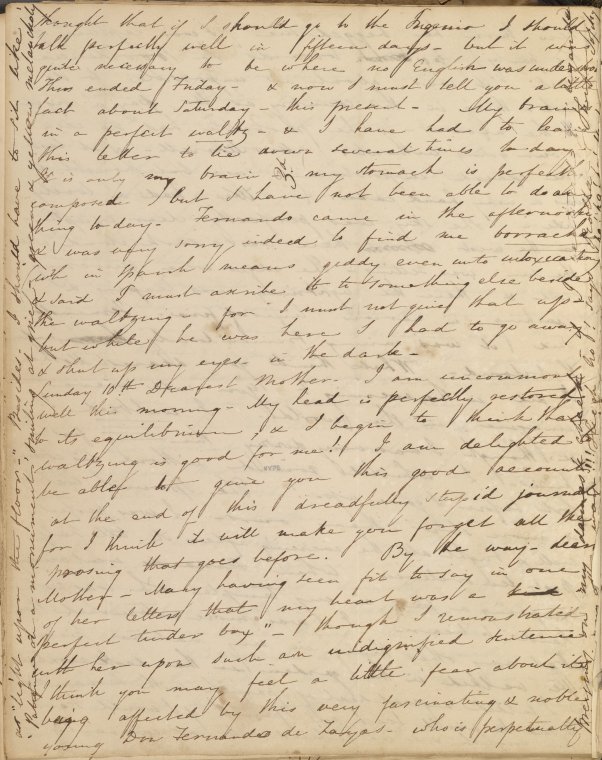 thought that if I should go to the Ingenio I should
talk perfectly well in fifteen days - but it was
quite necessary to be where no English was understood
Thus ended Friday - & now I must tell you a little
fact about Saturday - this present - My brain
in a perfect waltz - & I have had to leave
this letter to lie down several times to day
It is only my brain - my stomach is perfectly
composed, but I have not been able to do any
thing to day. Fernando came in the afternoon
& was very sorry indeed to find me borracha
which in Spanish means giddy even unto intoxication
& said I must ascribe it to something else beside
the waltzing - for I must not give that up -
but while he was here I had to go away
& shut up my eyes in the dark -
Sunday 10th Dearest Mother - I am uncommonly
well this morning - My head is perfectly restored
to its equilibrium, & I begin to think that
waltzing is good for me! I am delighted to
be able to give you this good account
at the end of this dreadfully stupid journal
for I think it will make you forget all the
prosing that goes before. By the way - dear
Mother - Mary having seen fit to say in one
of her letters that my heart was a
perfect tinder box" - though I remonstrated
with her upon such an undignified sentence
I think you may feel a little fear about its
being affected by this very fascinating & noble
young Don Fernando de Zayas - who is perpetually
as "light upon the floor -" Besides I should have to sit like
"Patience on a monument" smiling at grief - green & yellow melancholy